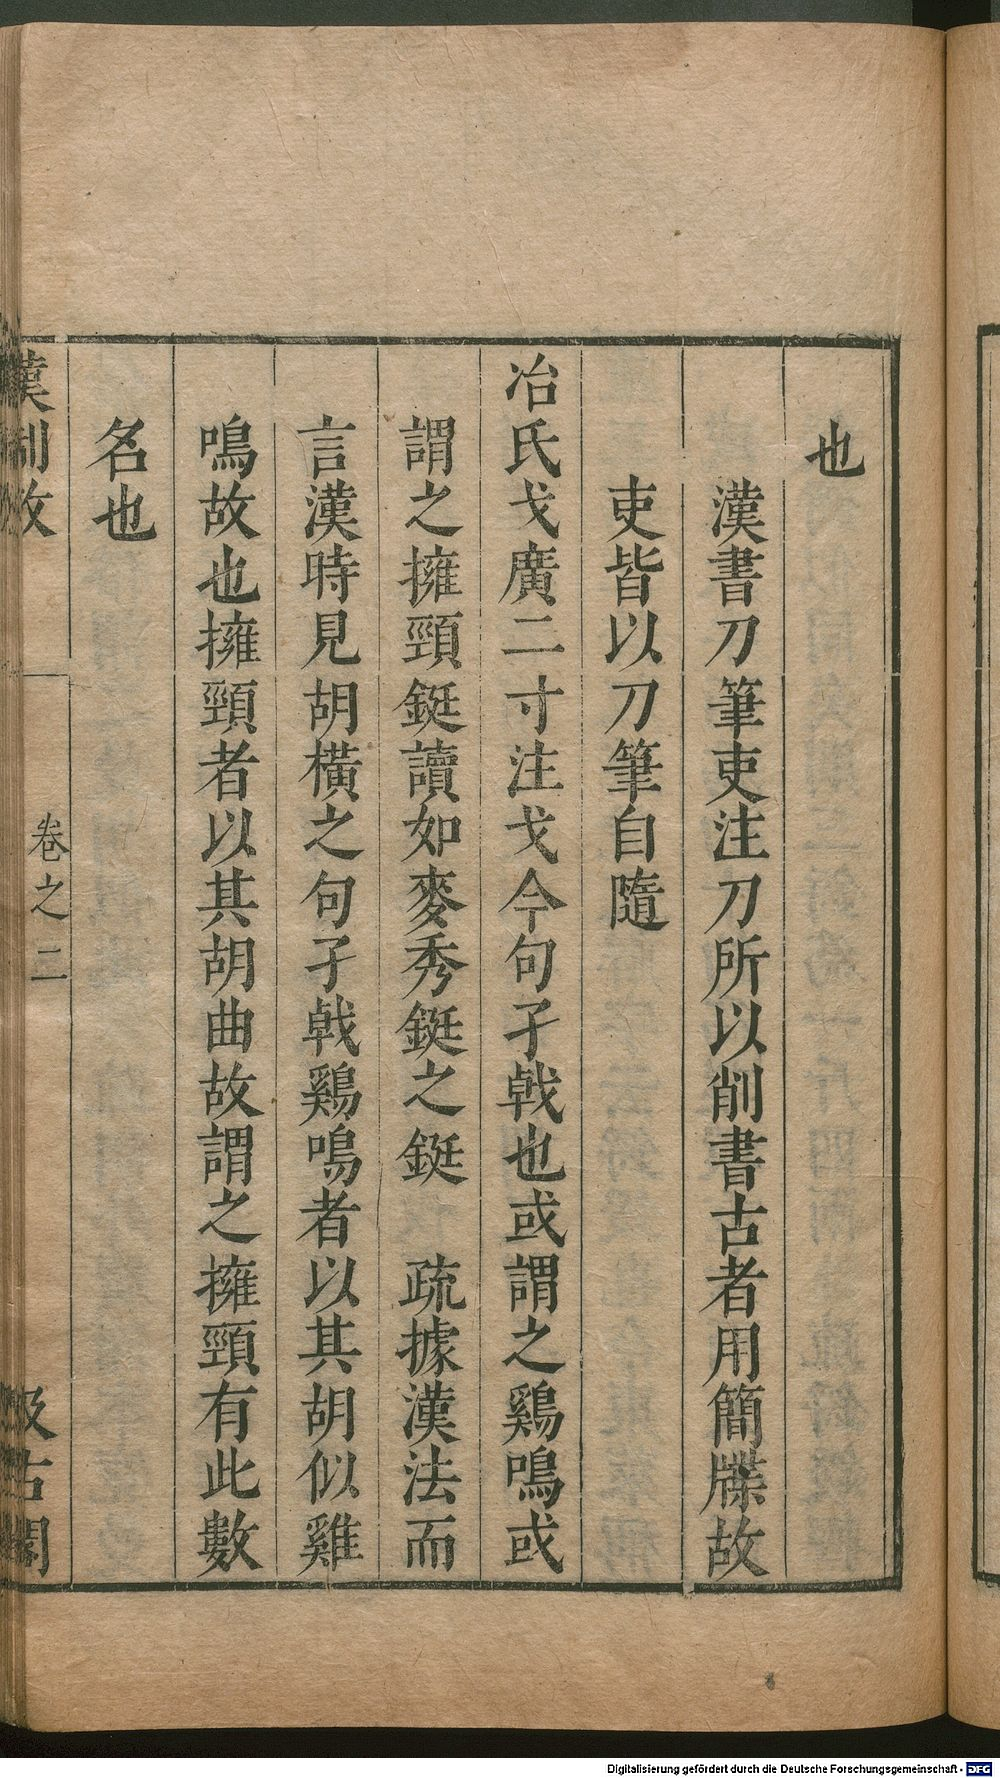 也
漢書刀筆吏注刀所以削書古者用簡牒故
吏皆以刀筆自隨
冶氏戈廣二寸注戈今句孑戟也或謂之鷄鳴或
謂之擁頸鋌讀如麥秀鋌之鋌　疏據漢法而
言漢時見胡橫之句孑戟鷄鳴者以其胡似雞
鳴故也擁頸者以其胡曲故謂之擁頸有此數
名也
漢制攷
卷之二
汲古閣
Digitalisierung gefördert durch die Deutsche Forschungsgemeinschaft - DFG